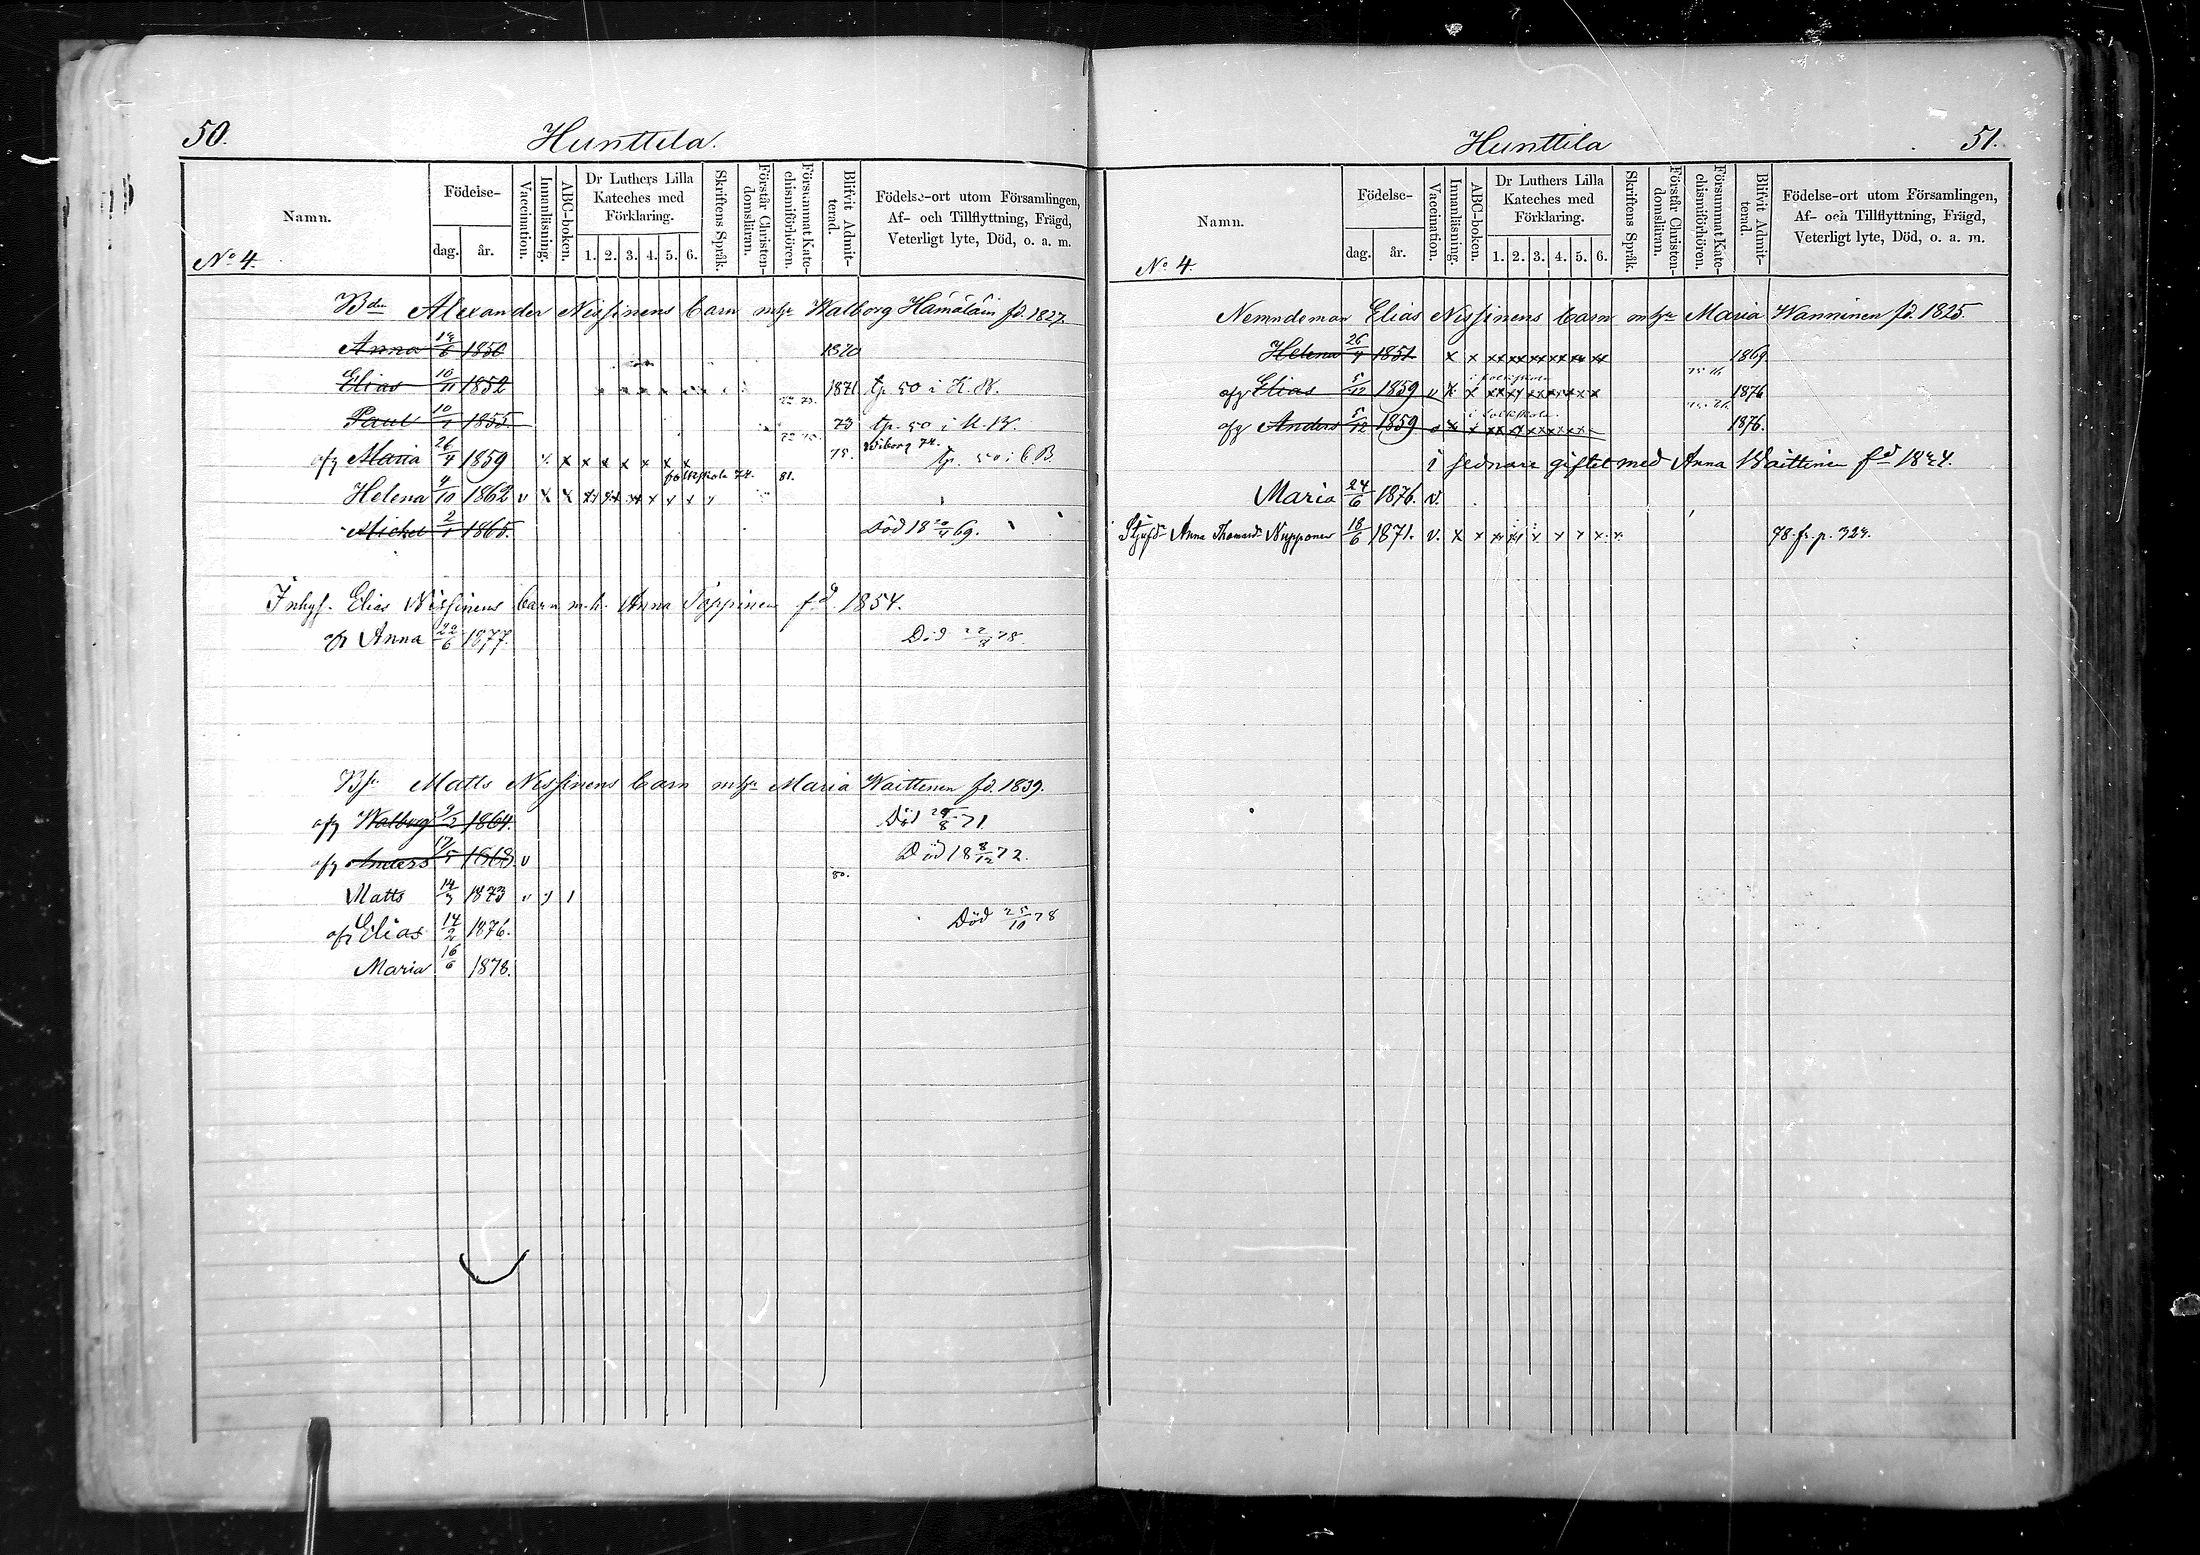 50.
Hunttila.
Namn.
Födelse-
dag.
år.
Vaccination.
Innanläsning.
ABC-boken.
Dr Luthers Lilla
Kateches med
Förklaring.
1. 2. 3. 4. 5. 6.
Skriftens Språk.
Förstår Christen-
domsläran.
Försummat Kate-
chismiförhören.
Blifvit Admit-
terad.
Födelse-ort utom Församlingen,
Af- och Tillflyttning, Frägd,
Veterligt lyte, Död, o. a. m.
No 4.
Bden Alexander Nissinens barn mhu Walborg Hämäläin fd. 1827.
Anna 1850 1870
Elias 10/11 1852 x x x x 1871 tp. 50 i K. W.
Paul 10/1 1855. 73 tp. 50 i
afg Maria 26/4 1859 x x x x x x x 75. Wiborg 74. tp. 50 i C. B.
folkskola 74. 81.
Helena 4/10 1862 v x x x x x x x x
Michel 2/1 1865. Död 18 69.
Inhys. Elias Nissinens barn m.h. Anna Töppinen fd. 1854.
afg Anna 22/6 1877. Död 78.
Bs. Matts Nissinens barn mhu Maria Waittenen fd. 1839.
afg Walborg 9/2 1864. Död 71.
afg Anders 17/5 1868. v Död 18 8/12 72.
80.
Matts 14/3 1873 v
afg Elias 14/2 1876. Död 25/10 78
Maria 16/6 1878.
Hunttila
51.
Namn.
Födelse-
dag.
år.
Vaccination.
Innanläsning.
ABC-boken.
Dr Luthers Lilla
Kateches med
Förklaring.
1. 2. 3. 4. 5. 6.
Skriftens Språk.
Förstår Christen-
domsläran.
Försummat Kate-
chismiförhören.
Blifvit Admit-
terad.
Födelse-ort utom Församlingen,
Af- och Tillflyttning, Frägd,
Veterligt lyte, Död, o. a. m.
No 4.
Nemndeman Elias Nissinens barn mhu Maria Wanninen fd. 1825.
Helena 26/4 1851 x x xx xx xx xx xx xx 1869
i folkskola
afg Elias 5/12 1859 v x x xx xx xx x x x 1876
i folkskola
afg Anders 5/12 1859 x x xx x x x x x 1876.
i sednare giftet med Anna Waittinen fd
Maria 24/6 1876. v.
Stjufd. Anna Thomasdr Nupponen 18/6 1871. v. x x x x x x x x x. 78. fr. p. 323.